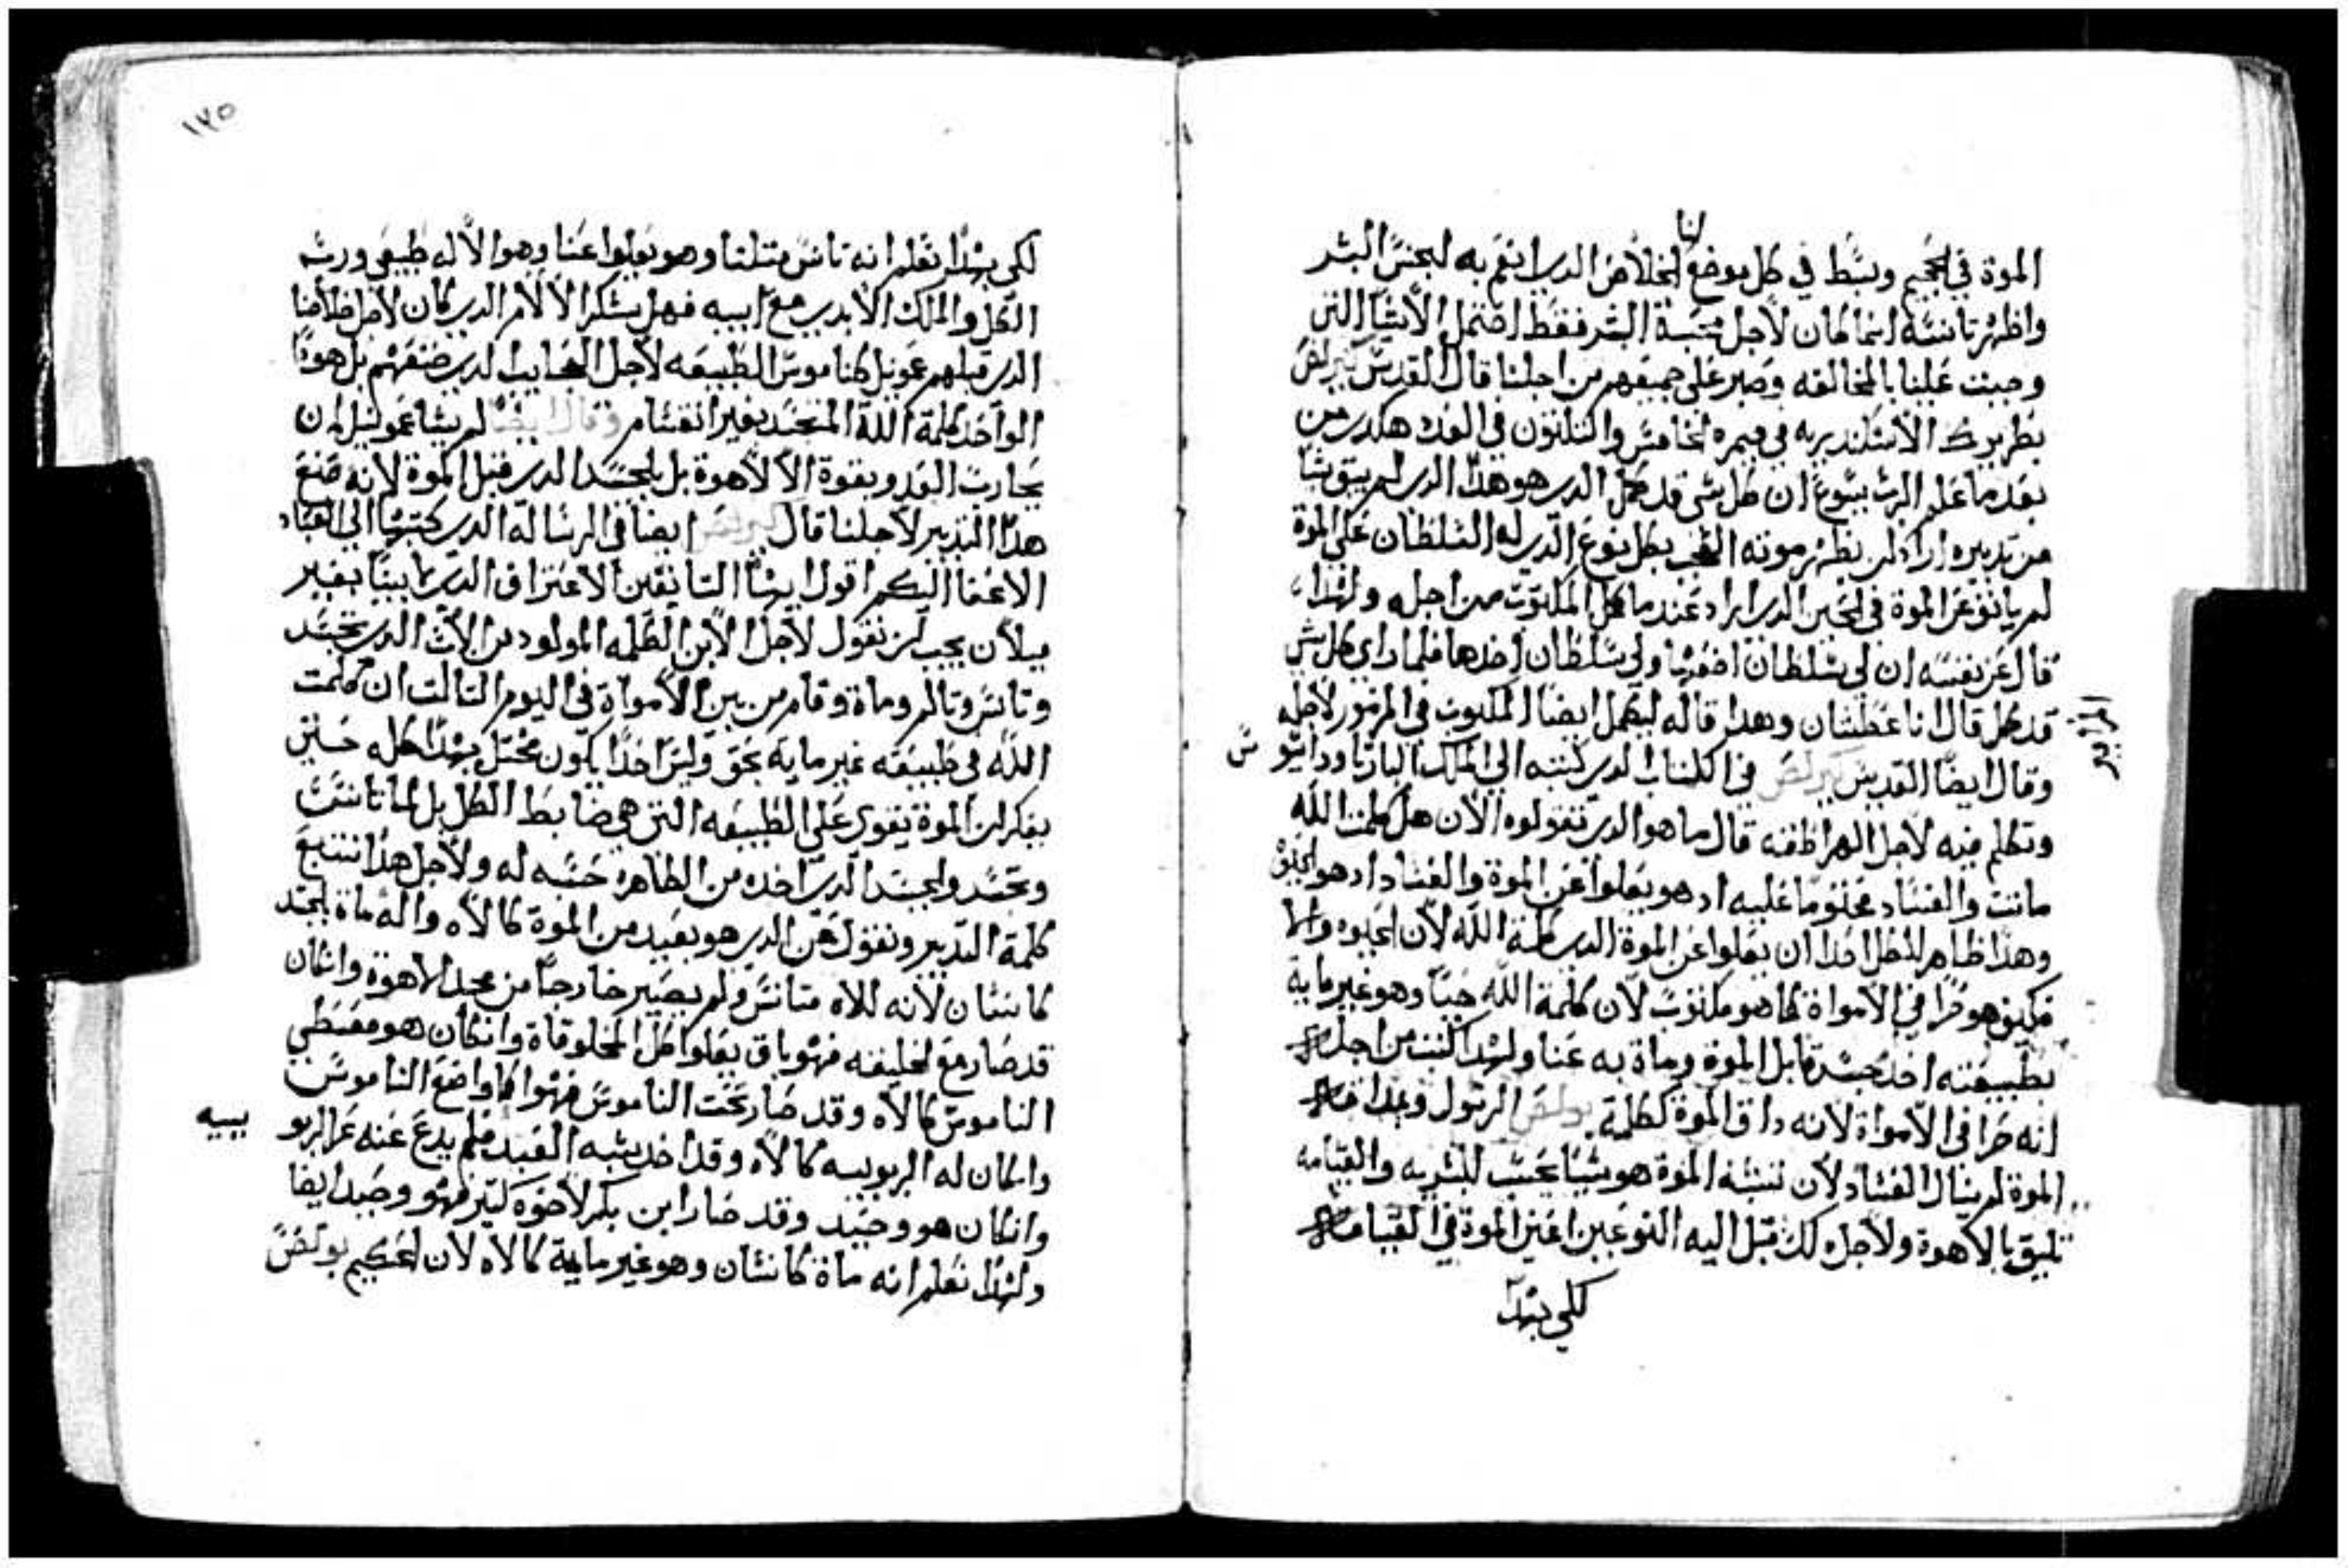 الموة في الجحيم وبسط في كل موضع الخلاص الدي انعم به لجنس البشر
واظهر تانسه انما كان لاجل محبة البشر فقط احتمل الاشيا التي
وجبت علينا بالمخالفه وصبر على جميعهم من اجلنا قال القديس كيرلص
بطريرك الاسكندريه في ميمره الخامس والتلتون في العدد هكدي من
بعد ما علم الرب يسوع ان كل شي قد كمل الدي هو هدا الدي لم يبق شيا
من تدبيره اراد ان يظهر موته العجب بكل نوع الدي له السلطان على الموة
لم ياتو عن الموة في الحين الدي اراد عندما كمل المكتوب من اجله ولهدا
قال عن نفسه ان لي سلطان اضعها ولي سلطان اخدها فلما راي كل شي
قد كمل قال انا عطشان وهدا قاله ليكمل ايضا المكتوب في المزمور لاجله
المزامير
وقال ايضا القديس كيرلص في الكتاب الدي كتبه الي الملك البار تاودانيو س
وتكلم فيه لاجل الهراطقه قال ما هو الدي تقولوه الان هل كلمة الله
ماتت والفساد مختوما عليه اد هو يعلوا عن الموة والفساد اد هو الخالق
وهدا ظاهر لكل احدا ان يعلوا عن الموة الدي كلمة الله لان الحيوه والها
فكيف هو حرا في الامواة كما هو مكتوب لان كلمة الله حيا وهو غير ماية
بطبيعته اخد جسد قابل الموة وماة به عنا ولهدا كتب من اجله
انه حرا في الامواة لانه داق الموة كلمة بولص الرسول وبهدا
الموة لم ينال الفساد لان نسبة الموة هو شيا يحسب للبشريه والقيامه
تليق بالاهوة ولاجل دلك قبل اليه النوعين اعني الموة في القيامة
لكي بهدا
١٢٥
لكي بهدا نعلم انه تانس متلنا وهو يعلوا عنا وهو الاله طبيعي ورب
الكل والملك الابدي مع ابيه فهل يشكر الالام الدي كان لاجل خلاصنا
الدي قبلهم عمونيل كناموس الطبيعه لاجل العجايب الدي صنعهم بل هودا
الواحد كلمة الله المتجسد بغير انقسام وقال ايضا لم يشا عمونيل ان
يحارب العدو بقوة الالاهوة بل بالجسد الدي قبل الموة لانه صنع
هدا التدبير لاجلنا قال كيرلص ايضا في الرسالة الدي كتبها الي العباد
الاعفا اليكم اقول ايها السابقين الاعتراف الدي لها بينا بغير
ميلان يجب ان نقول لاجل الابن الكلمه المولود من الاب الدي تجسد
وتانس وتالم وماة وقام من بين الامواة في اليوم التالت ان كلمت
الله في طبيعته غير ماية بحق وليس احدا يكون مختل بهدا كله حتي
يفكر ان الموة يقوي على الطبيعه التي هي ضابط الكل بل لما تانست
وتجسد والجسد الدي اخده من الطاهره حسبه له ولاجل هدا نتبع
كلمة التدبير ونقول هن الدي هو بعيد من الموة كالاه واله ماة بالجسد
كانسان لانه للاه متانس ولم يصير خارجا من مجد الاهوة وانكان
قد صار مع الخليقه فهو باق يعلوا كل المخلوقاة وانكان هو معطي
الناموس كالاه وقد صار تحت الناموس فهوا كا واضع الناموس
وانكان له الربوبيه كالاه وقد اخد شبه العبد فلم يدع عنه عز الربو بييه
وانكان هو وحيد وقد صار ابن بكر لاخوه كتير فهو وحيد ايضا
ولهدا نعلم انه ماة كانسان وهو غير ماية كالاه لان الحكيم بولص